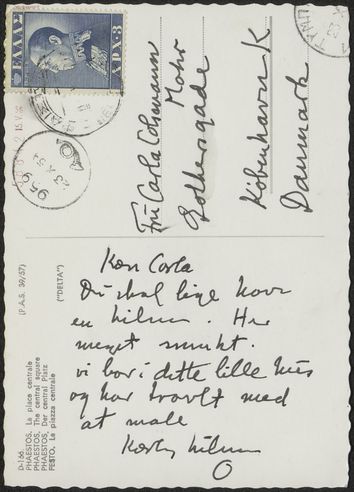 ΕΛΛΑΣ
ΔΡΑΧ. 3
959
23.X.59
Fru Carla Colsmann
Mohr
Gothersgade
København K
Danmark
Kære Carla
Du skal lige have
en hilsen. Her
meget smukt.
vi bor i dette lille hus
og har travlt med
at male
Kærlig hilsen
O
D-166.
PHAESTOS, La place centrale
PHAESTOS, The central square
PHAESTOS, Der central Platz
FESTO, La piazza centrale
(P.A.S. 39/57)
("DELTA")